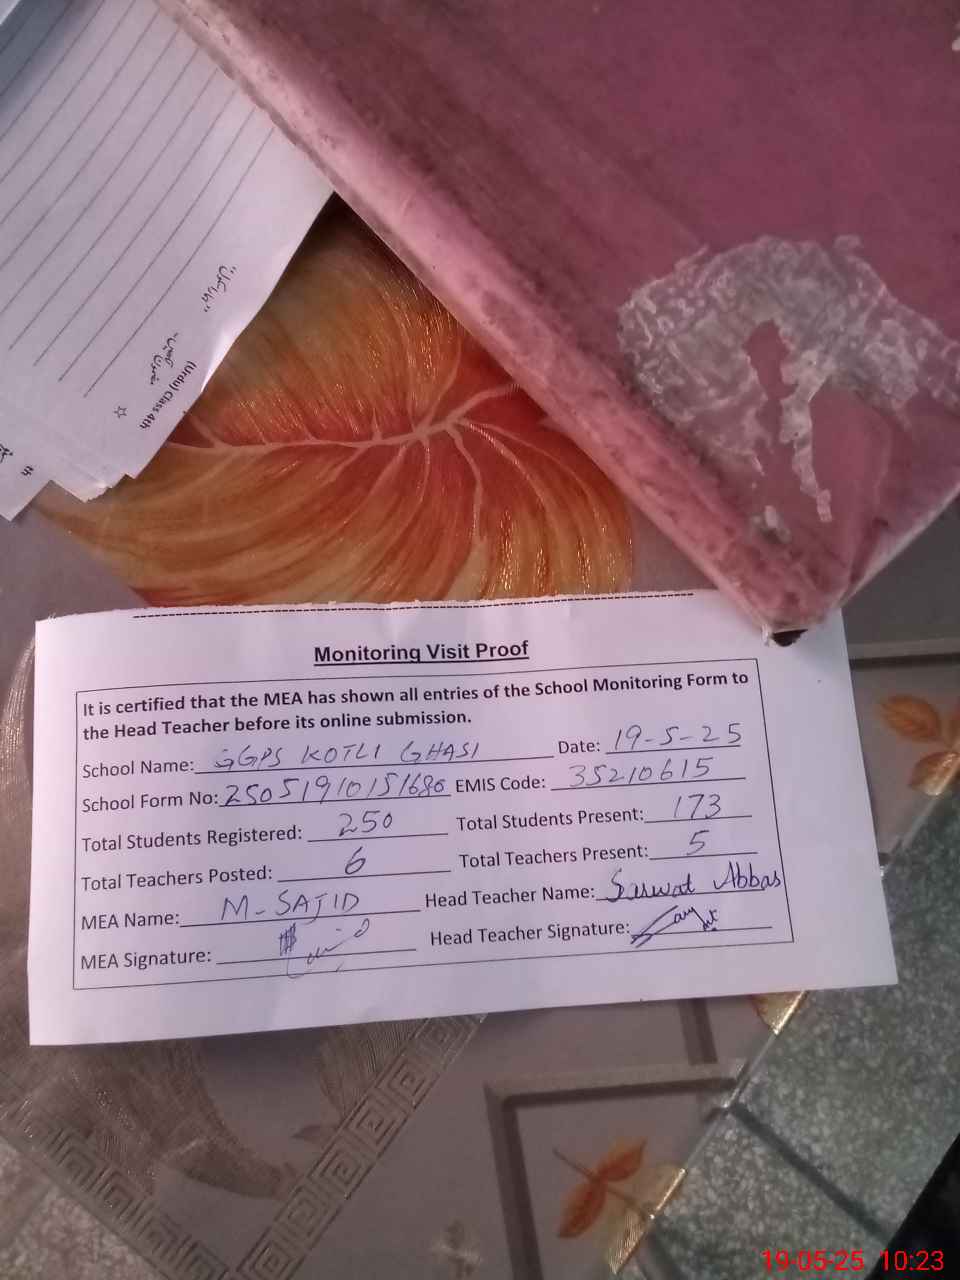 (Urdu) Class 4th
th
Monitoring Visit Proof
It is certified that the MEA has shown all entries of the School Monitoring Form to
the Head Teacher before its online submission.
School Name: GGPS KOTLI GHASI Date: 19-5-25
School Form No: 25051910151686 EMIS Code: 35210615
Total Students Registered: 250 Total Students Present: 173
Total Teachers Posted: 6 Total Teachers Present: 5
MEA Name: M-SAJID Head Teacher Name: Serwat Abbas
MEA Signature: Head Teacher Signature:
19-05-25 10:23